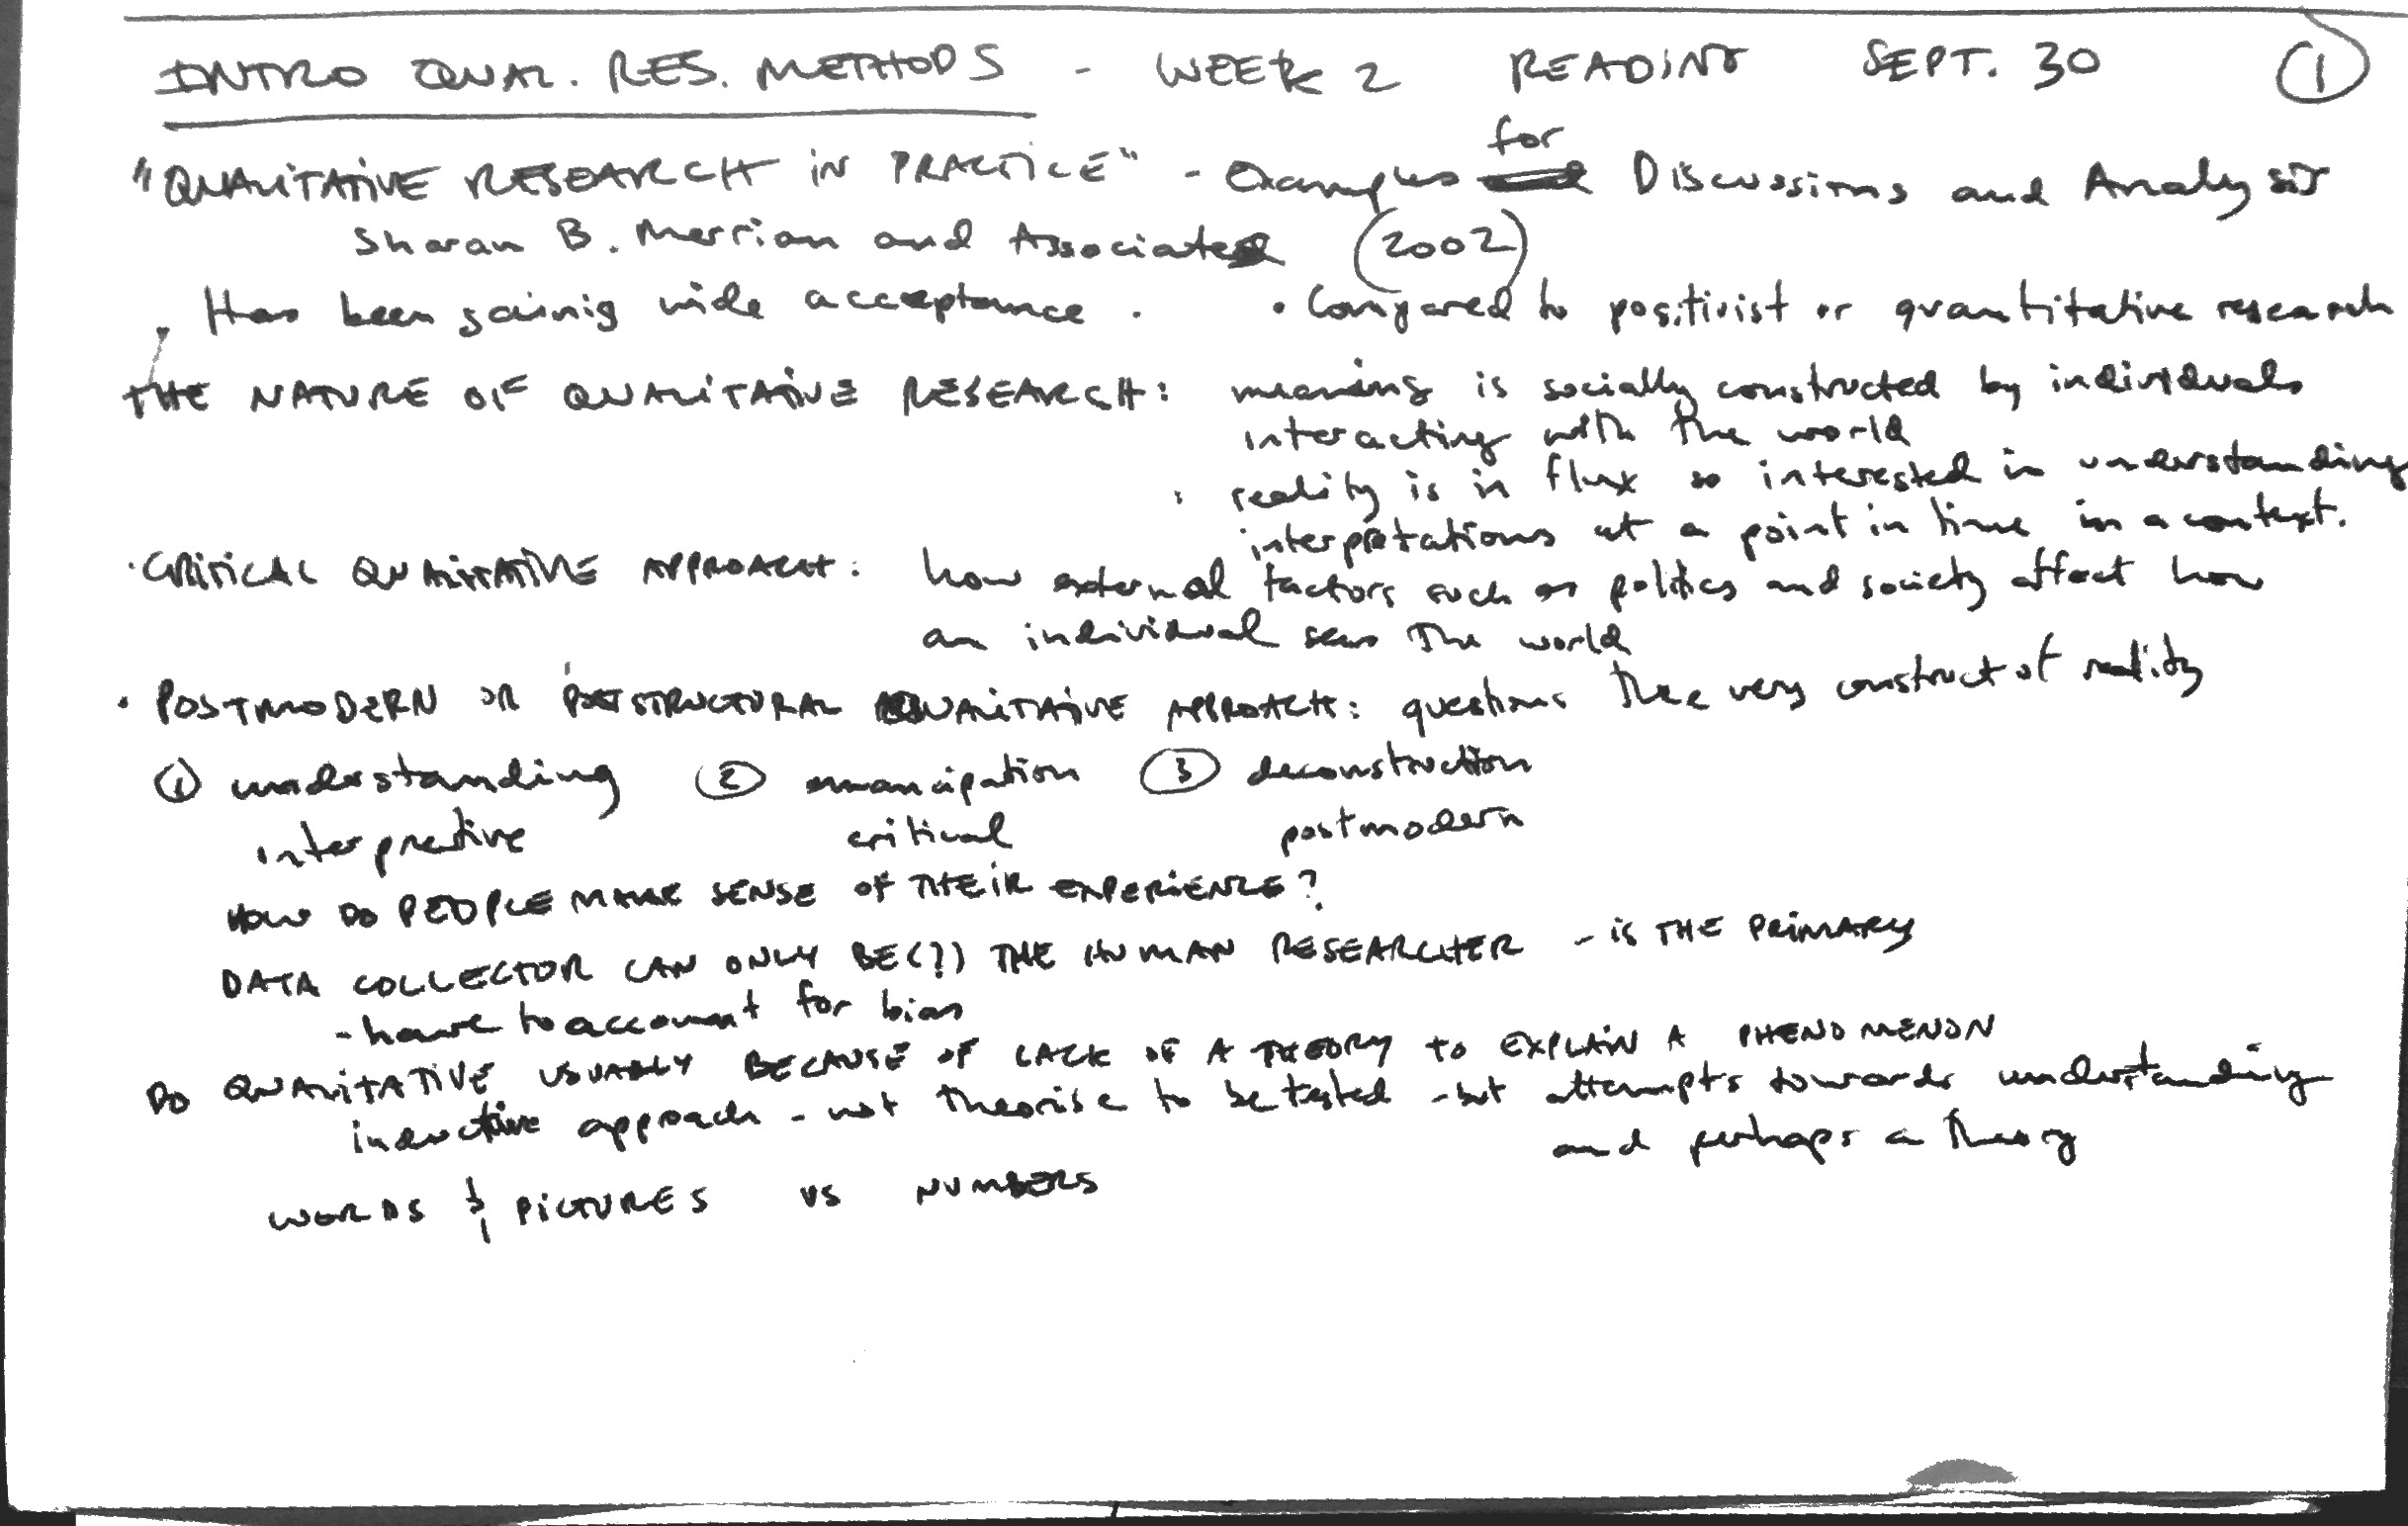 INTRO QUAL. RES. METHODS - WEEK 2 READING SEPT. 30 ①
"QUALITATIVE RESEARCH IN PRACTICE" - Examples for Discussions and Analysis
Sharan B. Merriam and Associates (2002)
. Has been gainig wide acceptance . • Compared to positivist or quantitative research
THE NATURE OF QUALITATIVE RESEARCH: meaning is socially constructed by individuals
interacting with the world
· reality is in flux so interested in understanding
interpretations at a point in time in a context.
·CRITICAL QUALITATIVE APPROACH: how external factors such as politics and society affect how
an individual sees the world
· POSTMODERN OR POSTSTRUCTURAL QUALITATIVE APPROACH: questions the very construct of reality
① understanding ② emancipation ③ deconstruction
interpretive critical postmodern
HOW DO PEOPLE MAKE SENSE OF THEIR EXPERIENCE?
DATA COLLECTOR CAN ONLY BE(?) THE HUMAN RESEARCHER - IS THE PRIMARY
- have to account for bias
DO QUALITATIVE USUALLY BECAUSE OF LACK OF A THEORY TO EXPLAIN A PHENOMENON
inductive approach - not theorise to be tested - but attempts towards understanding
and perhaps a theory
WORDS & PICTURES VS NUMBERS